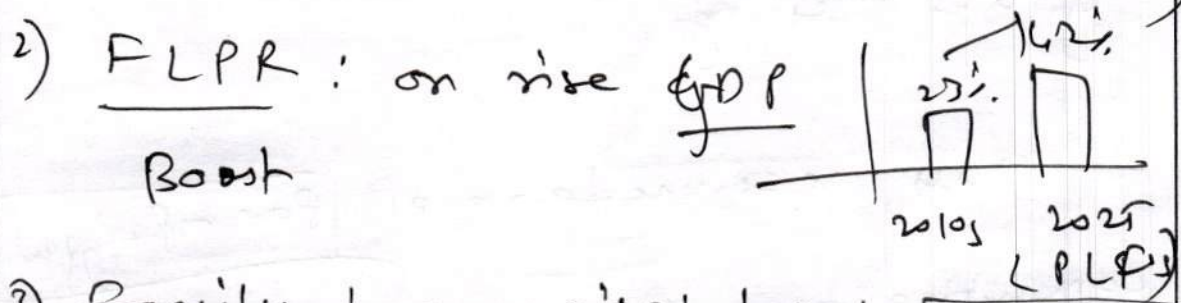 2) FLPR : on rise GDP
Boost
23%. 42%.
2010s 2025
(PLFS)